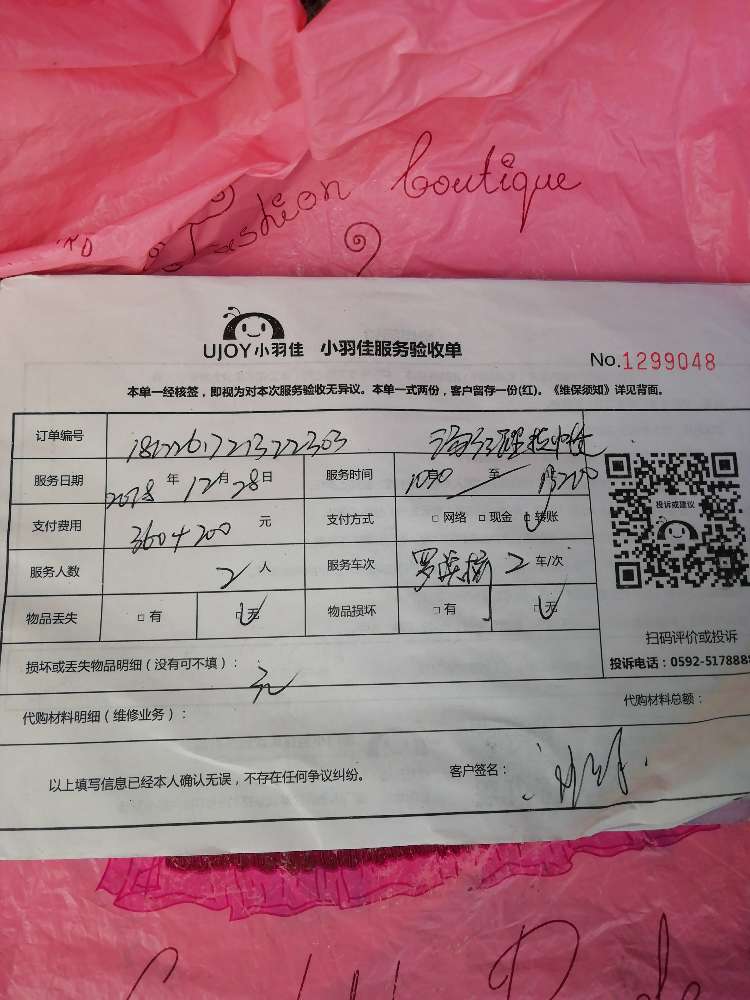 Fashion boutique
UJOY小羽佳 小羽佳服务验收单
No.1299048
本单一经核签，即视为对本次服务验收无异议。本单一式两份，客户留存一份(红)。《维保须知》详见背面。
订单编号
服务日期 2018年12月28日 服务时间 至
支付费用 360+200 元 支付方式 □网络 □现金 □转账
服务人数 2人 服务车次 2 车/次
物品丢失 □有 □无 物品损坏 □有 □无
投诉或建议
扫码评价或投诉
投诉电话：0592-5178888
损坏或丢失物品明细（没有可不填）： 无
代购材料明细（维修业务）： 代购材料总额：
以上填写信息已经本人确认无误，不存在任何争议纠纷。 客户签名：